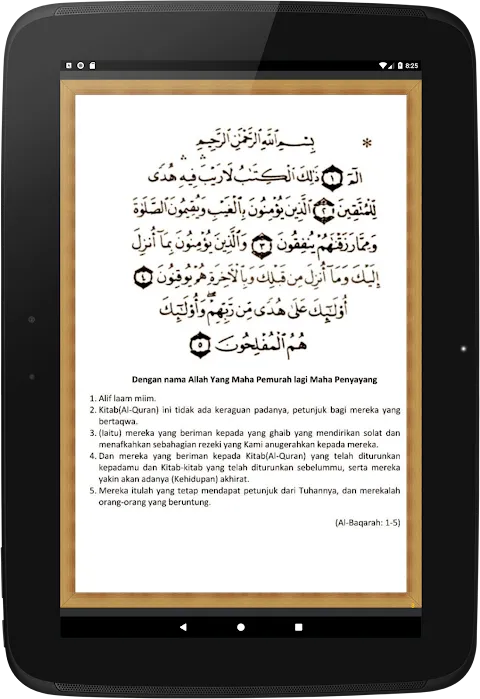 8:25
*
بِسْمِ اللَّهِ الرَّحْمَٰنِ الرَّحِيمِ
الٓمٓ ١ ذَٰلِكَ الْكِتَٰبُ لَا رَيْبَ ۛ فِيهِ ۛ هُدًى
لِّلْمُتَّقِينَ ٢ الَّذِينَ يُؤْمِنُونَ بِالْغَيْبِ وَيُقِيمُونَ الصَّلَوٰةَ
وَمِمَّا رَزَقْنَٰهُمْ يُنفِقُونَ ٣ وَالَّذِينَ يُؤْمِنُونَ بِمَآ أُنزِلَ
إِلَيْكَ وَمَآ أُنزِلَ مِن قَبْلِكَ وَبِالْءَاخِرَةِ هُمْ يُوقِنُونَ ٤
أُوْلَٰٓئِكَ عَلَىٰ هُدًى مِّن رَّبِّهِمْ ۖ وَأُوْلَٰٓئِكَ
هُمُ الْمُفْلِحُونَ ٥
Dengan nama Allah Yang Maha Pemurah lagi Maha Penyayang
1. Alif laam miim.
2. Kitab(Al-Quran) ini tidak ada keraguan padanya, petunjuk bagi mereka yang
bertaqwa.
3. (Iaitu) mereka yang beriman kepada yang ghaib yang mendirikan solat dan
menafkahkan sebahagian rezeki yang Kami anugerahkan kepada mereka.
4. Dan mereka yang beriman kepada Kitab(Al-Quran) yang telah diturunkan
kepadamu dan Kitab-kitab yang telah diturunkan sebelummu, serta mereka
yakin akan adanya (Kehidupan) akhirat.
5. Mereka itulah yang tetap mendapat petunjuk dari Tuhannya, dan merekalah
orang-orang yang beruntung.
(Al-Baqarah: 1-5)